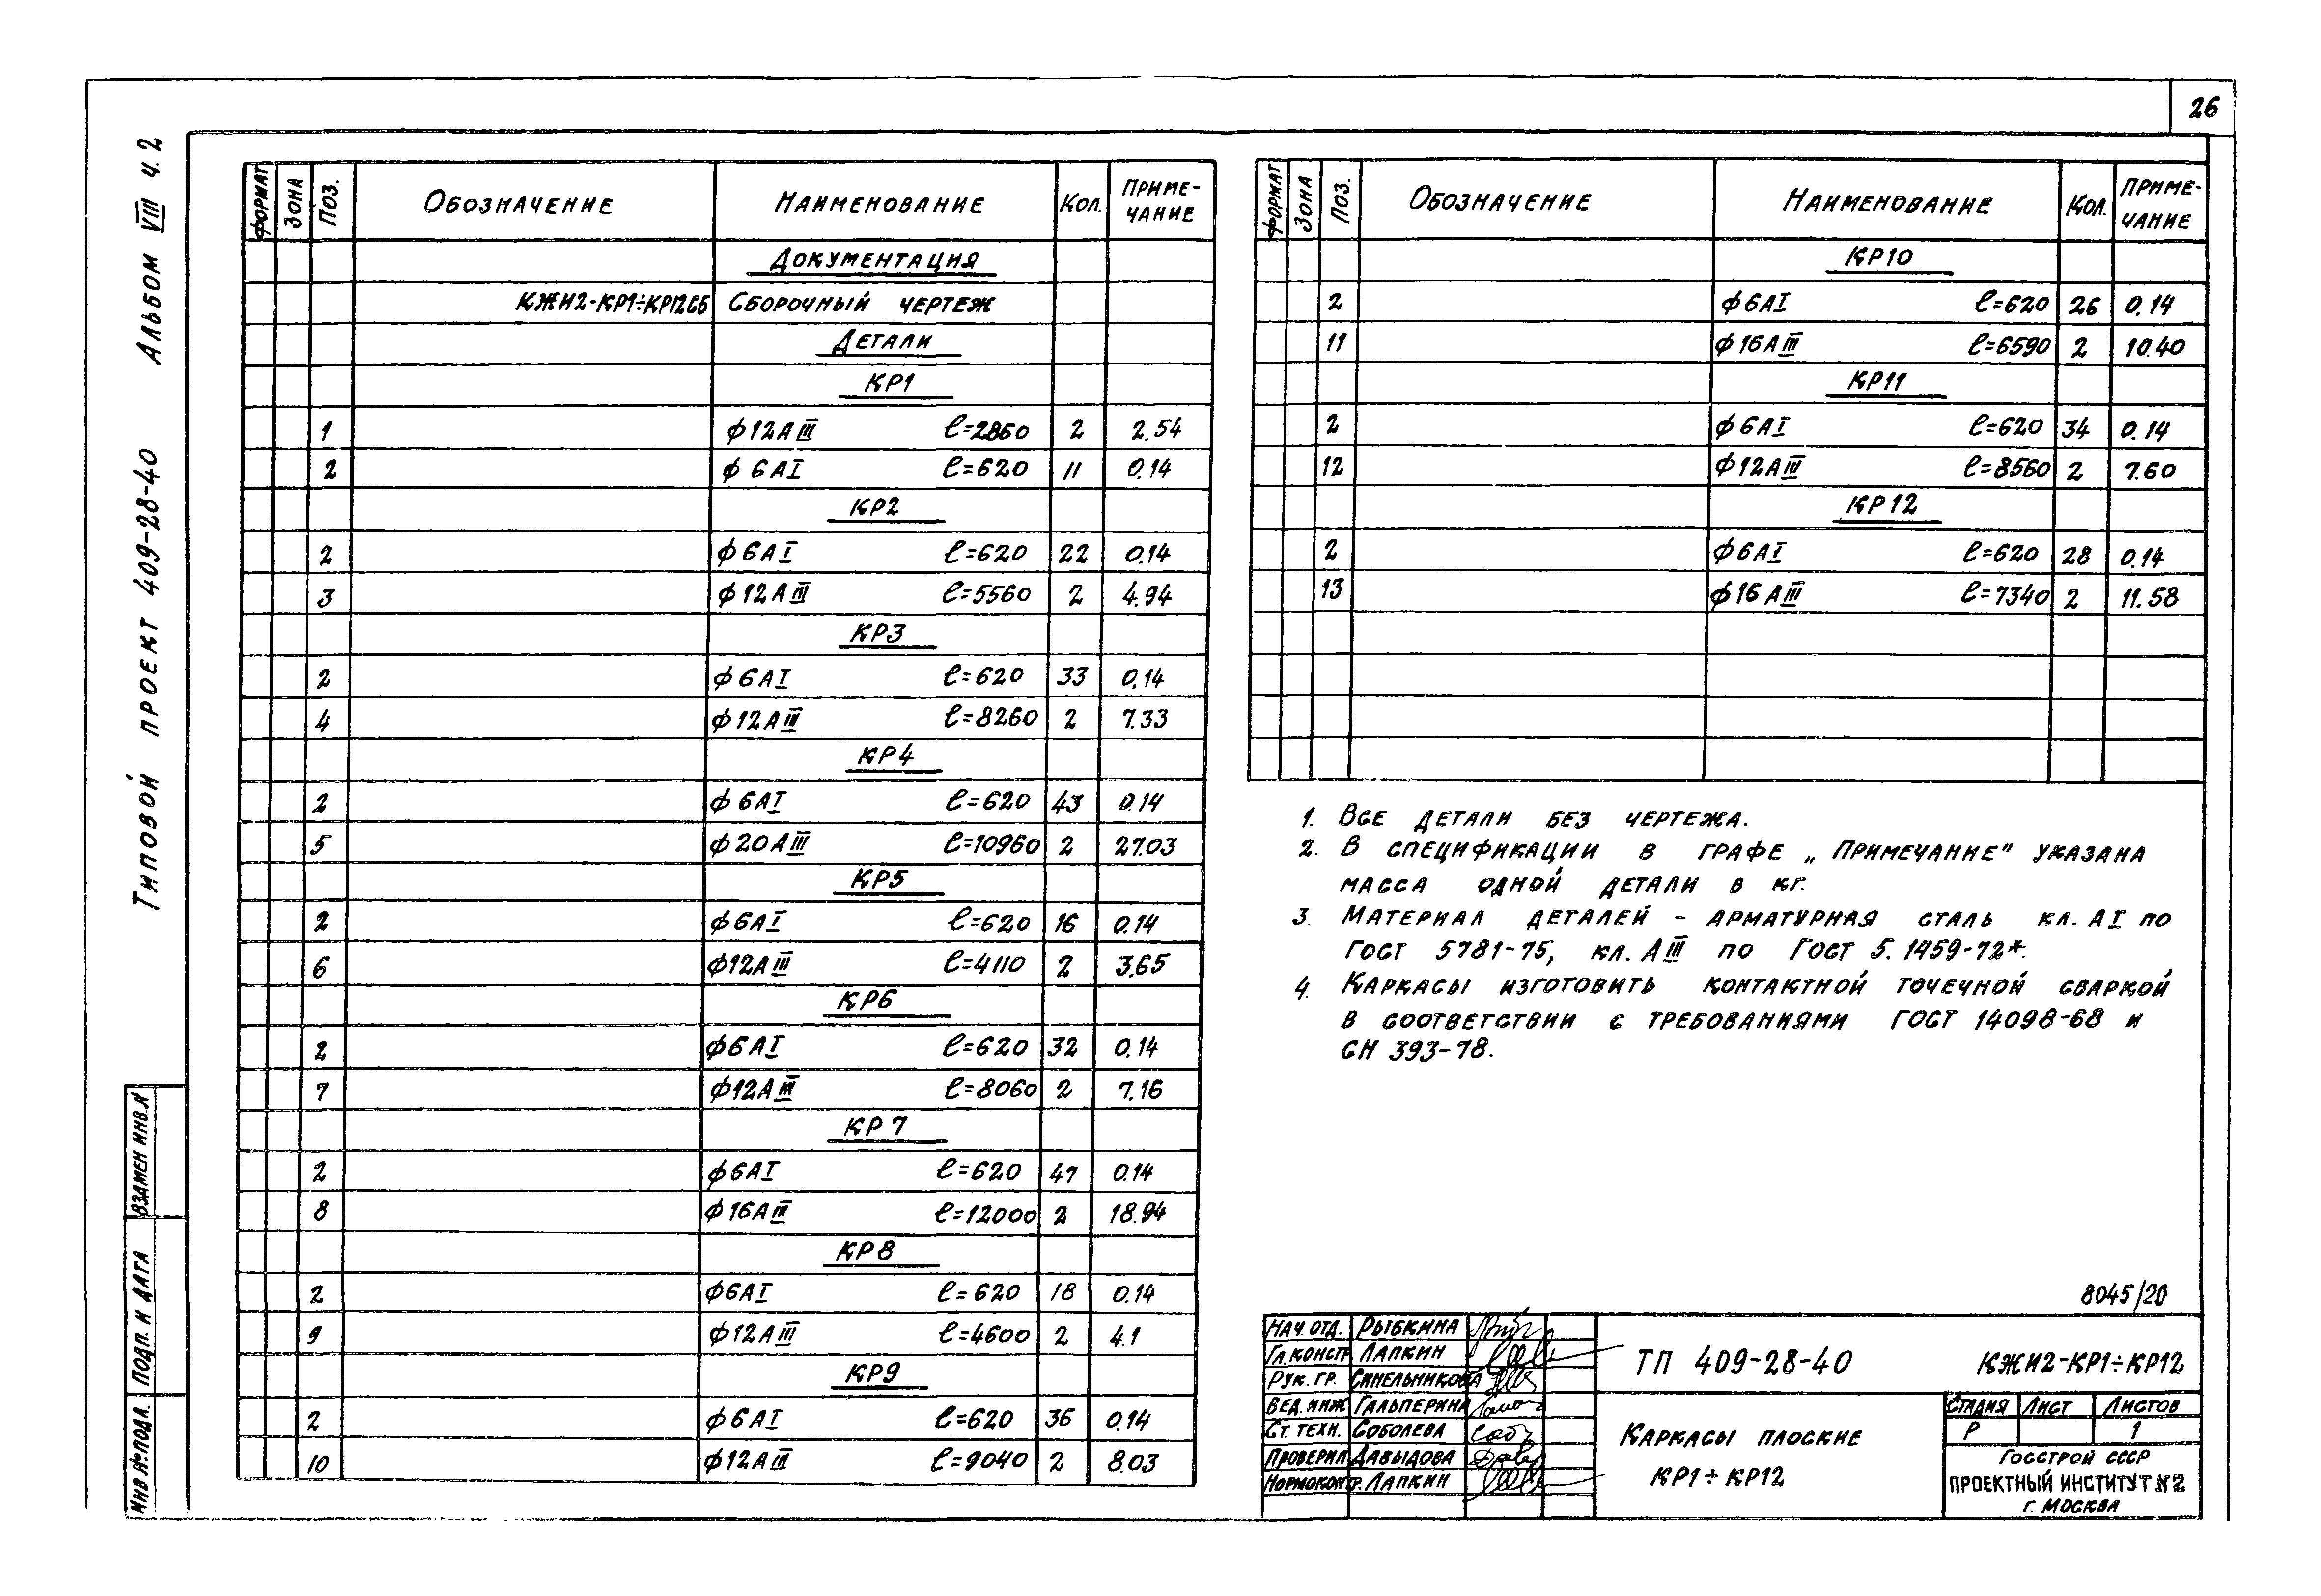 26
Альбом VIII ч. 2
Типовой проект 409-28-40
ВЗАМЕН ИНВ.N
ПОДП. И ДАТА
ИНВ.N ПОДЛ.
ФОРМАТ ЗОНА ПОЗ. ОБОЗНАЧЕНИЕ НАИМЕНОВАНИЕ КОЛ. ПРИМЕ-
ЧАНИЕ
ДОКУМЕНТАЦИЯ
КЖИ2-КР1÷КР12СБ СБОРОЧНЫЙ ЧЕРТЕЖ
ДЕТАЛИ
КР1
1 ф12АIII ℓ=2860 2 2.54
2 ф6АI ℓ=620 11 0.14
КР2
2 ф6АI ℓ=620 22 0.14
3 ф12АIII ℓ=5560 2 4.94
КР3
2 ф6АI ℓ=620 33 0.14
4 ф12АIII ℓ=8260 2 7.33
КР4
2 ф6АI ℓ=620 43 0.14
5 ф20АIII ℓ=10960 2 27.03
КР5
2 ф6АI ℓ=620 16 0.14
6 ф12АIII ℓ=4110 2 3.65
КР6
2 ф6АI ℓ=620 32 0.14
7 ф12АIII ℓ=8060 2 7.16
КР7
2 ф6АI ℓ=620 47 0.14
8 ф16АIII ℓ=12000 2 18.94
КР8
2 ф6АI ℓ=620 18 0.14
9 ф12АIII ℓ=4600 2 4.1
КР9
2 ф6АI ℓ=620 36 0.14
10 ф12АIII ℓ=9040 2 8.03
ФОРМАТ ЗОНА ПОЗ. ОБОЗНАЧЕНИЕ НАИМЕНОВАНИЕ КОЛ. ПРИМЕ-
ЧАНИЕ
КР10
2 ф6АI ℓ=620 26 0.14
11 ф16АIII ℓ=6590 2 10.40
КР11
2 ф6АI ℓ=620 34 0.14
12 ф12АIII ℓ=8560 2 7.60
КР12
2 ф6АI ℓ=620 28 0.14
13 ф16АIII ℓ=7340 2 11.58
1. ВСЕ ДЕТАЛИ БЕЗ ЧЕРТЕЖА.
2. В СПЕЦИФИКАЦИИ В ГРАФЕ „ПРИМЕЧАНИЕ" УКАЗАНА
МАССА ОДНОЙ ДЕТАЛИ В КГ.
3. МАТЕРИАЛ ДЕТАЛЕЙ - АРМАТУРНАЯ СТАЛЬ КЛ. АI ПО
ГОСТ 5781-75, КЛ. АIII ПО ГОСТ 5.1459-72*.
4. КАРКАСЫ ИЗГОТОВИТЬ КОНТАКТНОЙ ТОЧЕЧНОЙ СВАРКОЙ
В СООТВЕТСТВИИ С ТРЕБОВАНИЯМИ ГОСТ 14098-68 И
СН 393-78.
8045/20
НАЧ. ОТД. РЫБКИНА
ГЛ. КОНСТР. ЛАПКИН
РУК. ГР. СИНЕЛЬНИКОВА
ВЕД. ИНЖ ГАЛЬПЕРИНА
СТ. ТЕХН. СОБОЛЕВА
ПРОВЕРИЛ ДАВЫДОВА
НОРМОКОНТР. ЛАПКИН
ТП 409-28-40 КЖИ2-КР1÷КР12
КАРКАСЫ ПЛОСКИЕ
КР1÷КР12
СТАДИЯ ЛИСТ ЛИСТОВ
Р 1
ГОССТРОЙ СССР
ПРОЕКТНЫЙ ИНСТИТУТ N2
Г. МОСКВА